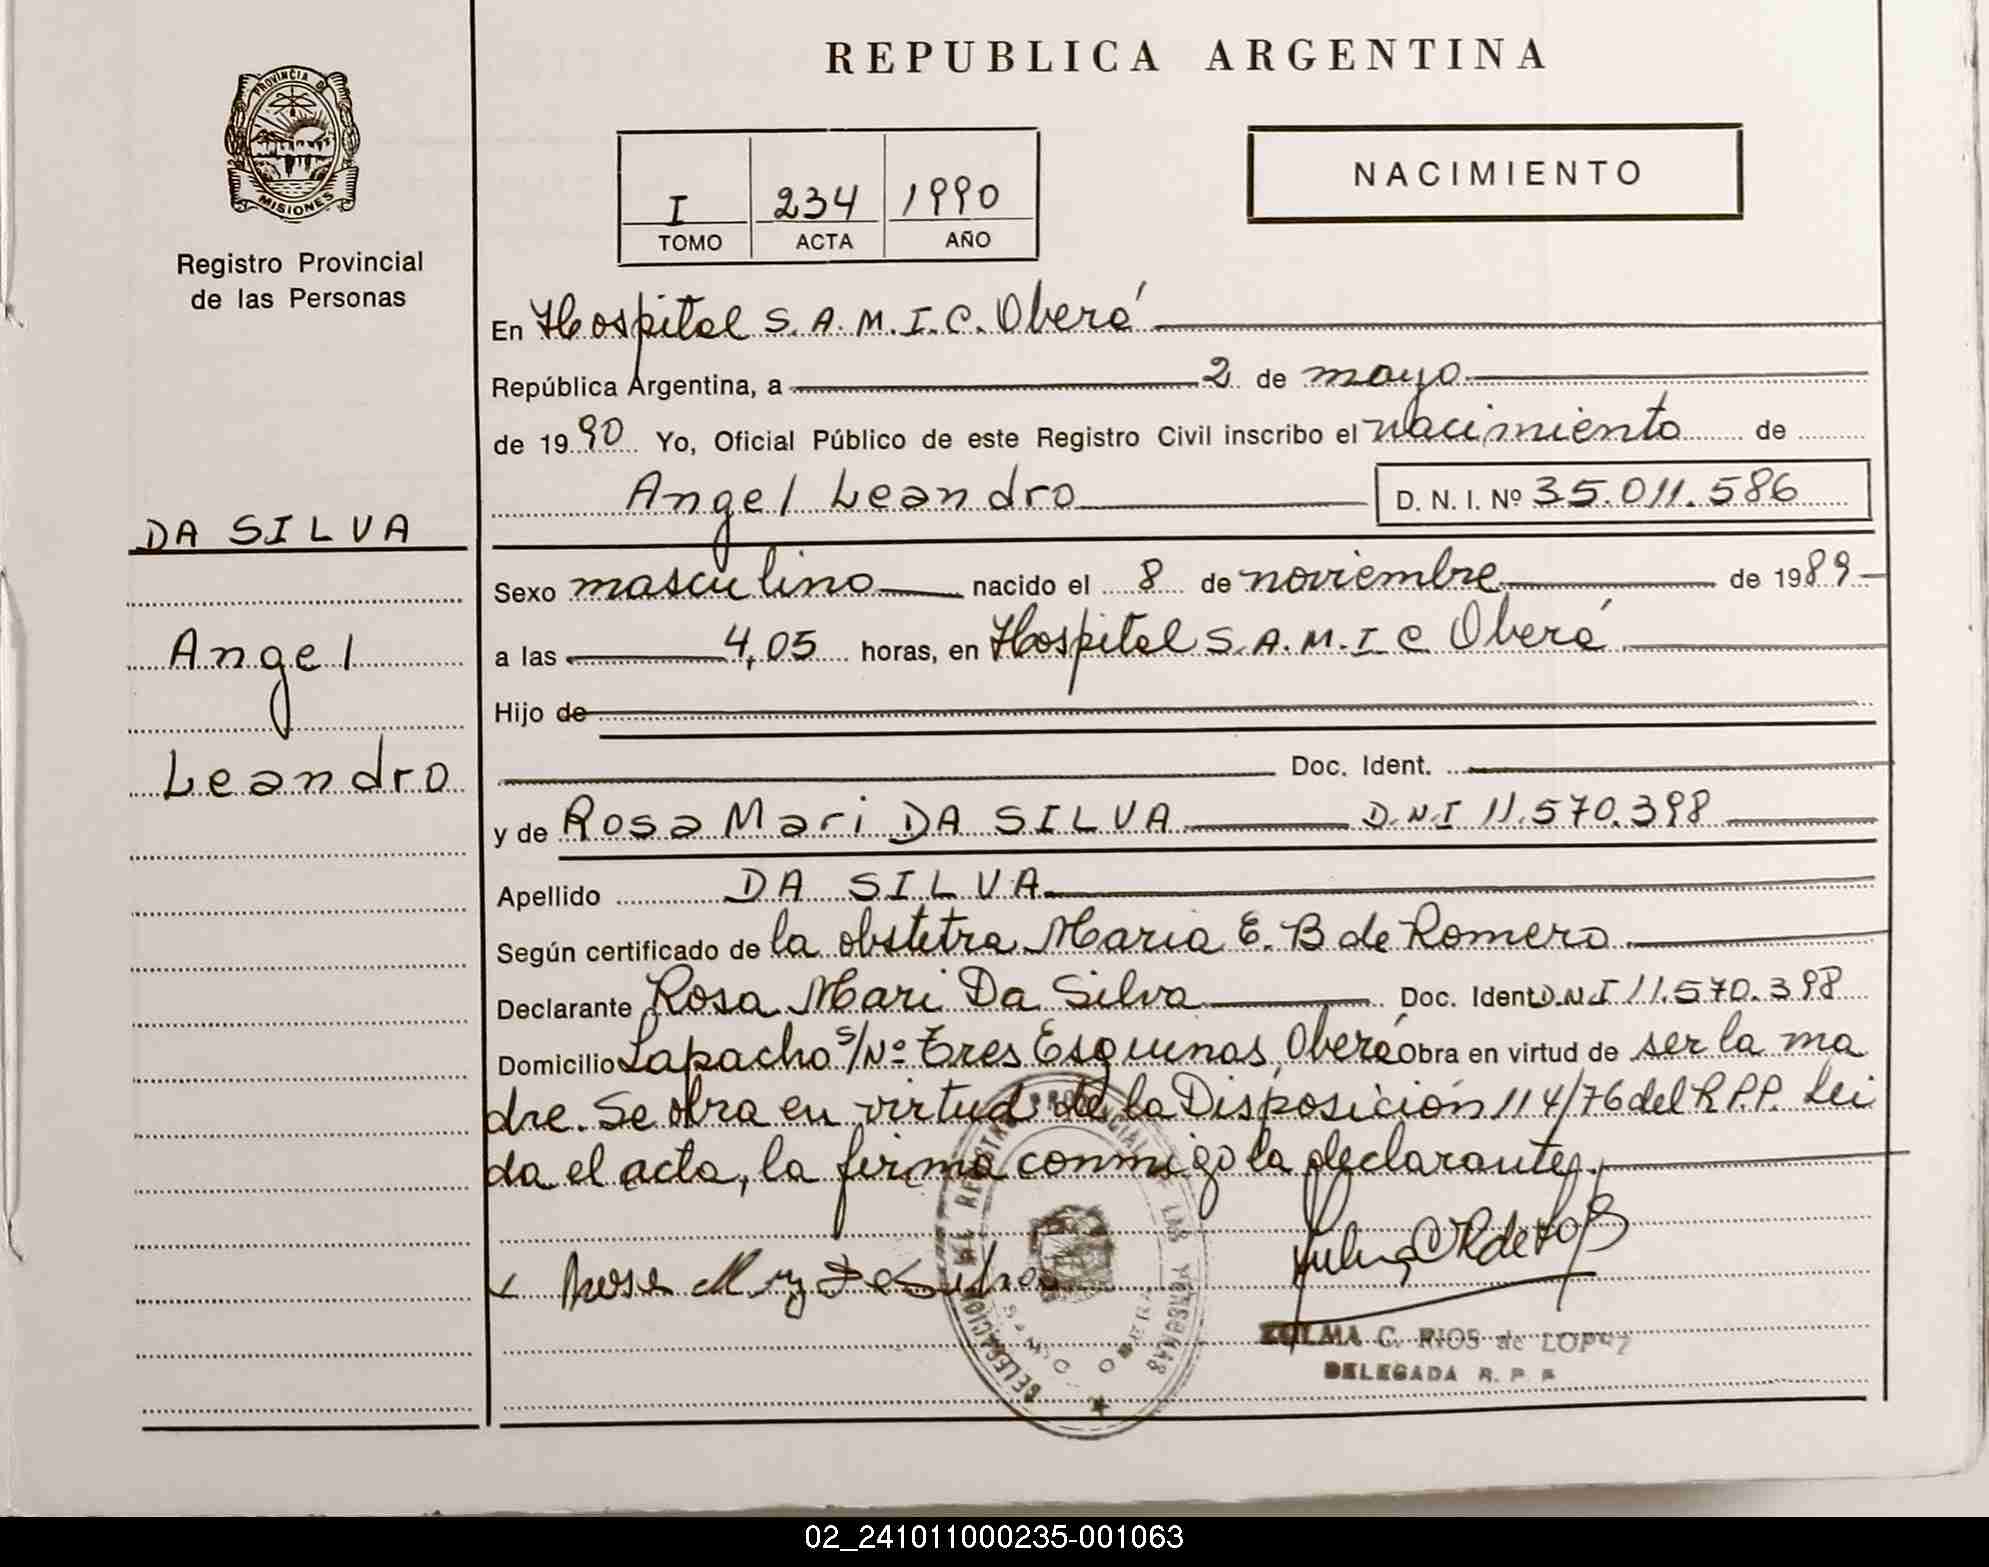 REPUBLICA ARGENTINA
PROVINCIA D
MISIONES
Registro Provincial
de las Personas
I 234 1990
TOMO ACTA AÑO
NACIMIENTO
En Hospital S.A.M.I.C. Oberá
República Argentina, a 2 de mayo
de 1990 Yo, Oficial Público de este Registro Civil inscribo el nacimiento de
Angel Leandro D. N. I. Nº 35.011.586
DA SILVA
Angel
Leandro
Sexo masculino nacido el 8 de noviembre de 1989
a las 4,05 horas, en Hospital S.A.M.I.C Oberá
Hijo de
Doc. Ident.
y de Rosa Mari DA SILVA D.N.I 11.570.398
Apellido DA SILVA
Según certificado de la obstetra Maria E. B de Romero
Declarante Rosa Mari Da Silva Doc. Ident D.N.I 11.570.398
Domicilio Lapacho S/Nº Tres Esquinas, Oberá Obra en virtud de ser la ma
dre. Se obra en virtud de la Disposición 114/76 del R.P.P. Lei
da el acta, la firma conmigo la declarante.
DELEGACION DEL REGISTRO PROVINCIAL DE LAS PERSONAS
ZULMA C. RIOS de LOPEZ
DELEGADA R. P. P.
02_241011000235-001063